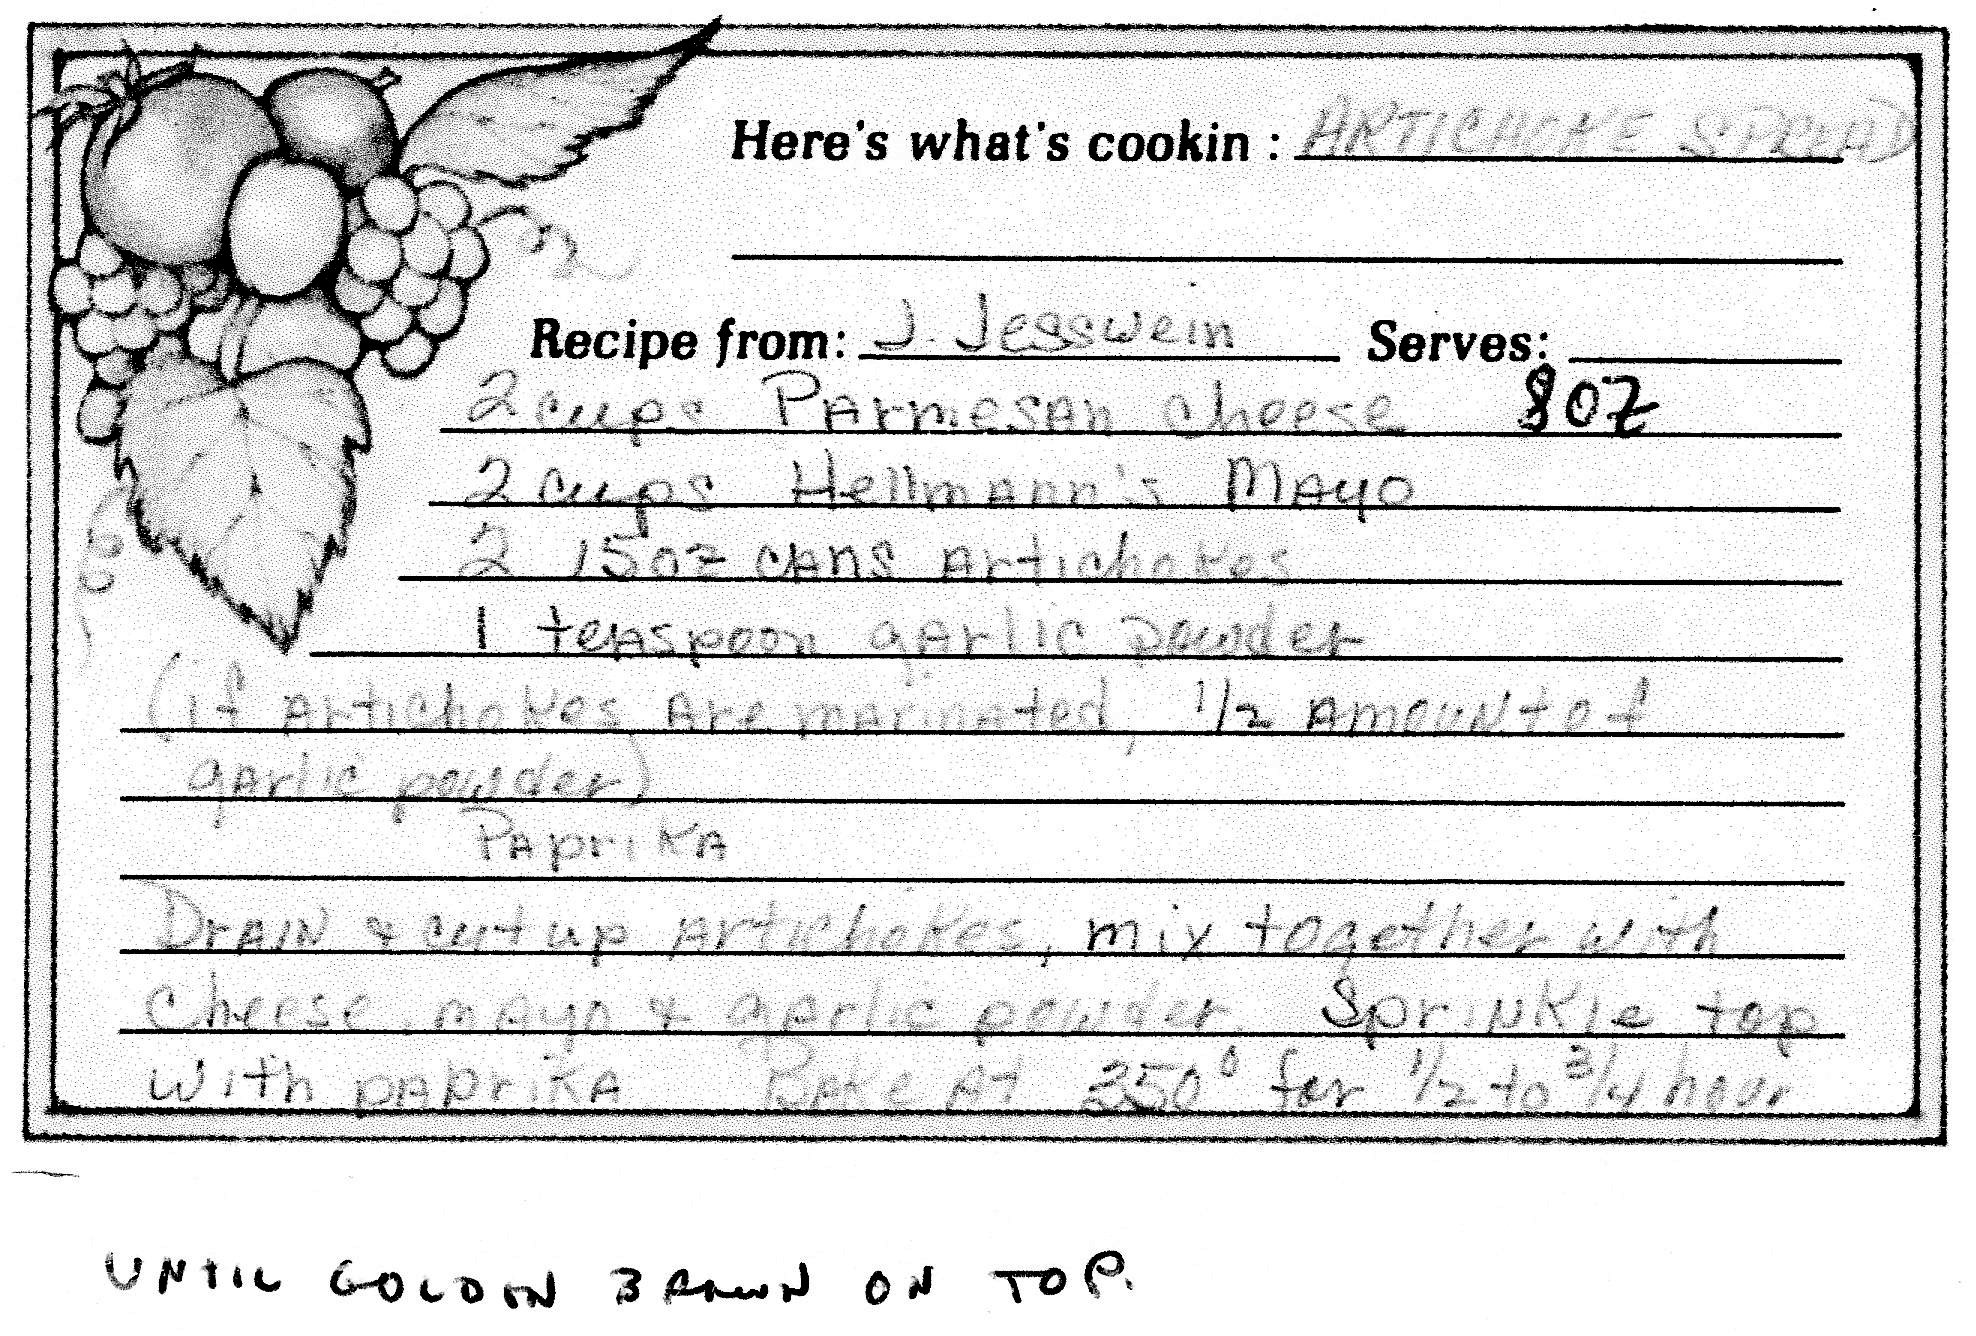 Here's what's cookin : ARTICHOKE SPREAD
Recipe from: J. Jesswein Serves:
2 cups Parmesan cheese 8oz
2 cups Hellmann's Mayo
2 15oz cans Artichokes
1 teaspoon garlic powder
(if Artichokes Are marinated, 1/2 Amount of
garlic powder)
Paprika
Drain & cut up Artichokes, mix together with
cheese, mayo & garlic powder. Sprinkle top
with paprika Bake At 350° for 1/2 to 3/4 hour
UNTIL GOLDEN BROWN ON TOP.